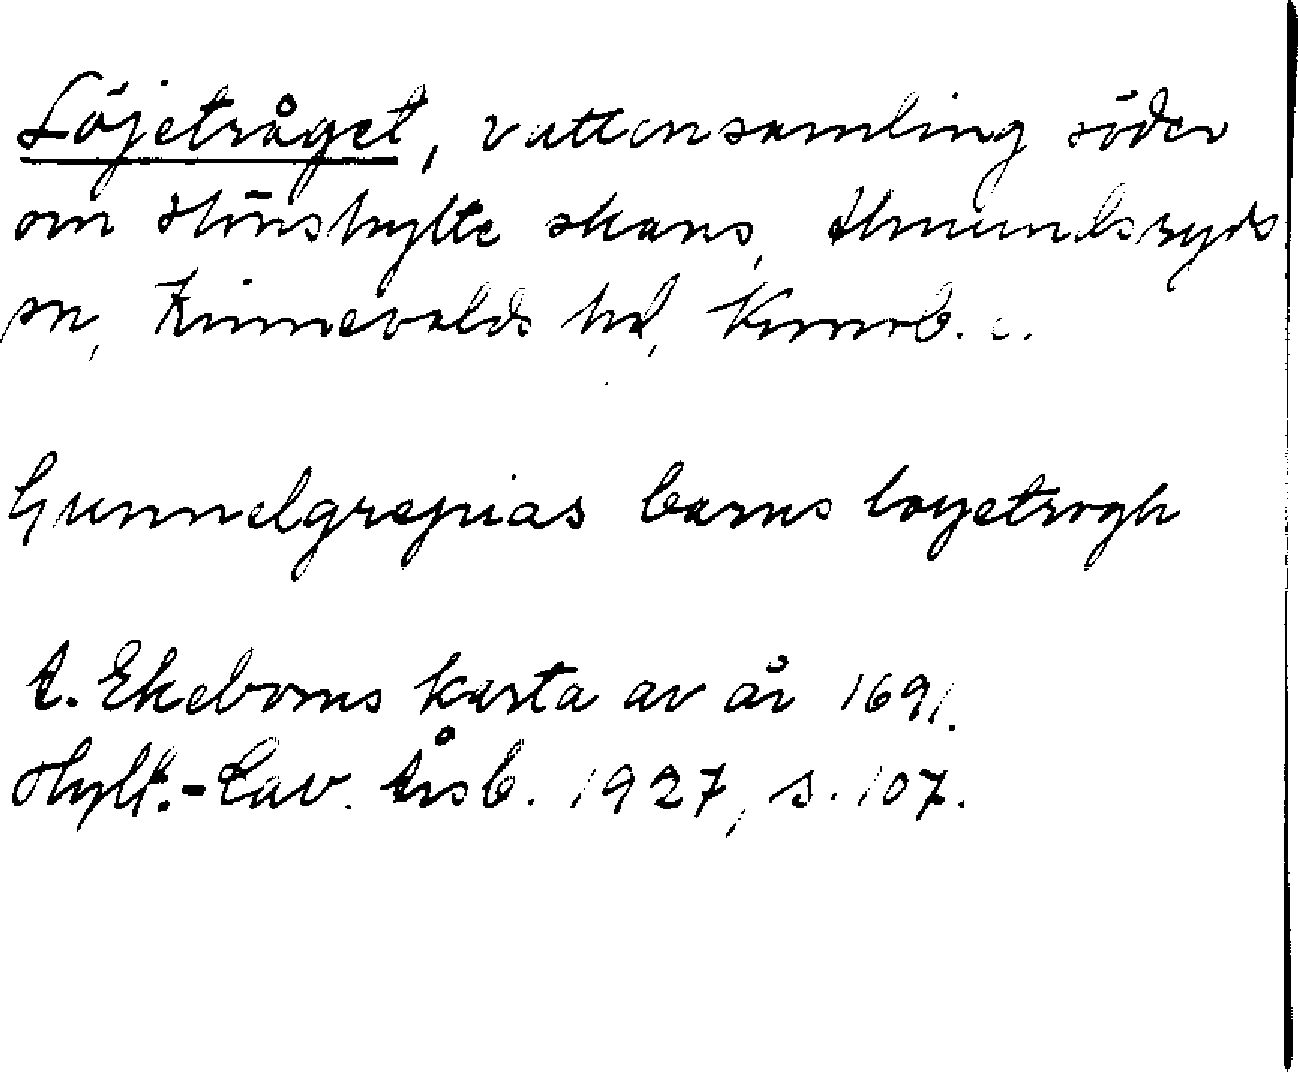 Löjetråget, vattensamling söder
om Hönshylte skans, Almundsryds
sn, Kinnevalds hd, Kronob. l.
Gunnelgrepias barns loyetrogh
A. Ekeboms karta av år 1691.
Hylt.-Cav. Årsb. 1927, s. 107.